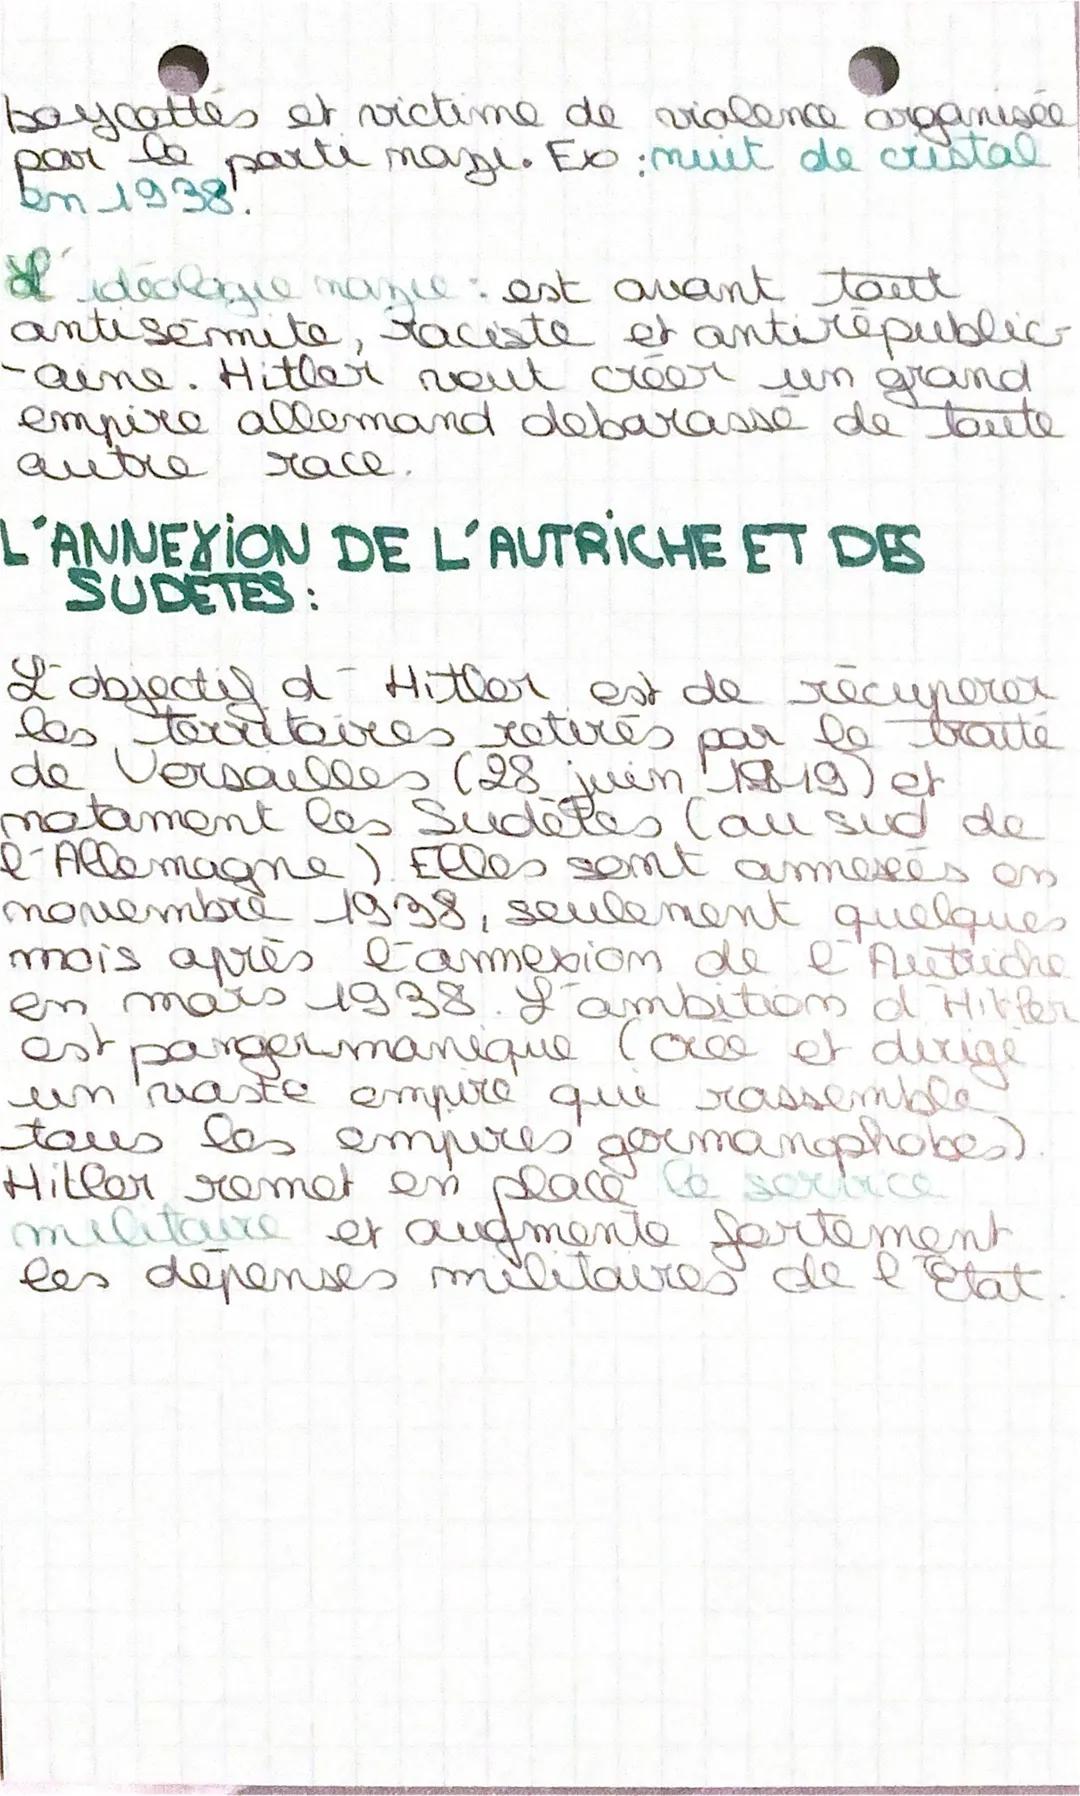 boycottés et victime de violence organisée
par le parti nazi. Ex : nuit de cristal
en 1938.
L'idéologie nazie : est avant tout
antisémite, raciste et antirépublic-
-aine. Hitler veut créer un grand
empire allemand debarassé de toute
autre race.
L'ANNEXION DE L'AUTRICHE ET DES
SUDETES :
L'objectif d'Hitler est de récuperer
les territoires retirés par le traité
de Versailles (28 juin 1919) et
notament les Sudètes (au sud de
l'Allemagne). Elles sont annexés en
novembre 1938, seulement quelques
mois après l'annexion de l'Autriche
en mars 1938. L'ambition d'Hitler
est pangermanique (crée et dirigé
un vaste empire qui rassemble
tous les empires germanophobes).
Hitler remet en place le service
militaire et augmente fortement
les dépenses militaires de l'État.